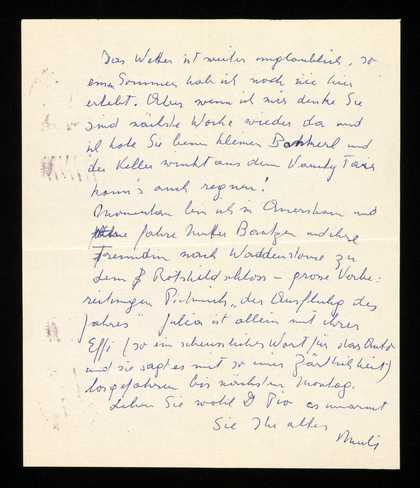 Das Wetter ist weiter unglaublich, so
einen Sommer hab ich noch nie hier
erlebt. Aber wenn ich mir denke Sie
sind nächste Woche wieder da und
ich hole Sie beim kleinen und
der Keller winkt aus dem Vanity Taxi
kann's auch regnen!
Momentan bin ich in Amersham und
fahre Mutter und ihre
Freundin nach Waddensdone zu
dem Rotshildschloss - grosse Vorbe-
reitungen Picknick "der Ausflug des
Jahres" Julia ist allein mit ihrer
Effi (so ein scheussliches Wort für das Auto
und sie sagt es mit so einer Zärtlichkeit)
losgefahren bis nächsten Montag.
Leben Sie wohl D Pio es umarmt
Sie Ihr alter